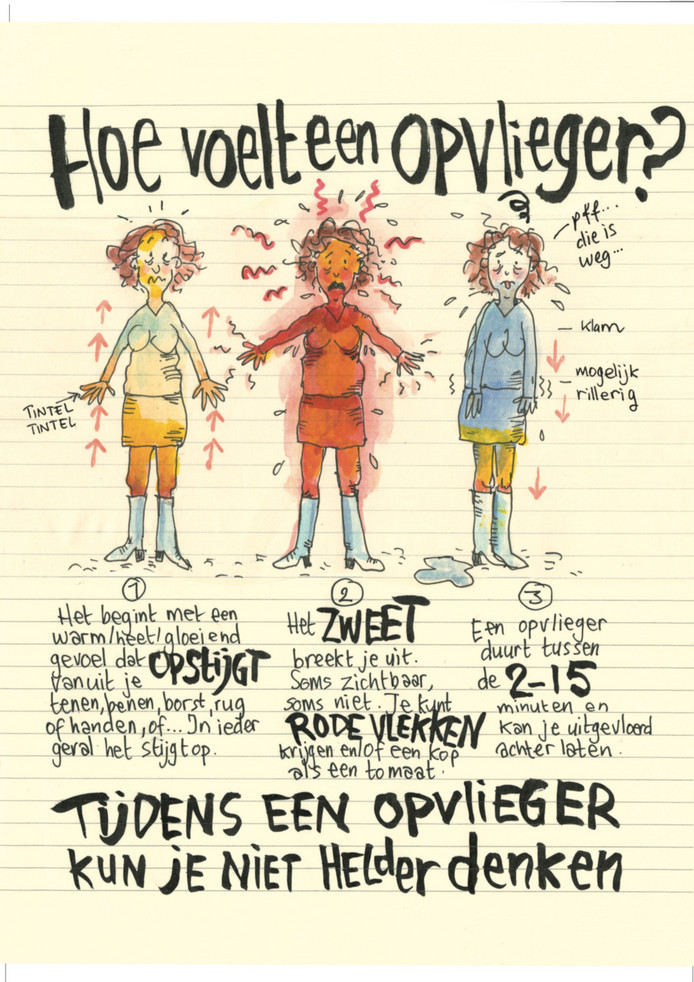 Hoe voelt een opvlieger?
pff....
die is
weg...
klam
mogelijk
rillerig
TINTEL
TINTEL
1
Het begint met een
warm/heet/gloeiend
gevoel dat OPSTIJGT
vanuit je
tenen, benen, borst, rug
of handen, of... In ieder
geval het stijgt op.
2
Het ZWEET
breekt je uit.
Soms zichtbaar,
soms niet. Je kunt
RODE VLEKKEN
krijgen en/of een kop
als een tomaat.
3
Een opvlieger
duurt tussen
de 2-15
minuten en
kan je uitgevloerd
achter laten.
TIJDENS EEN OPVLIEGER
KUN JE NIET HELDER denken